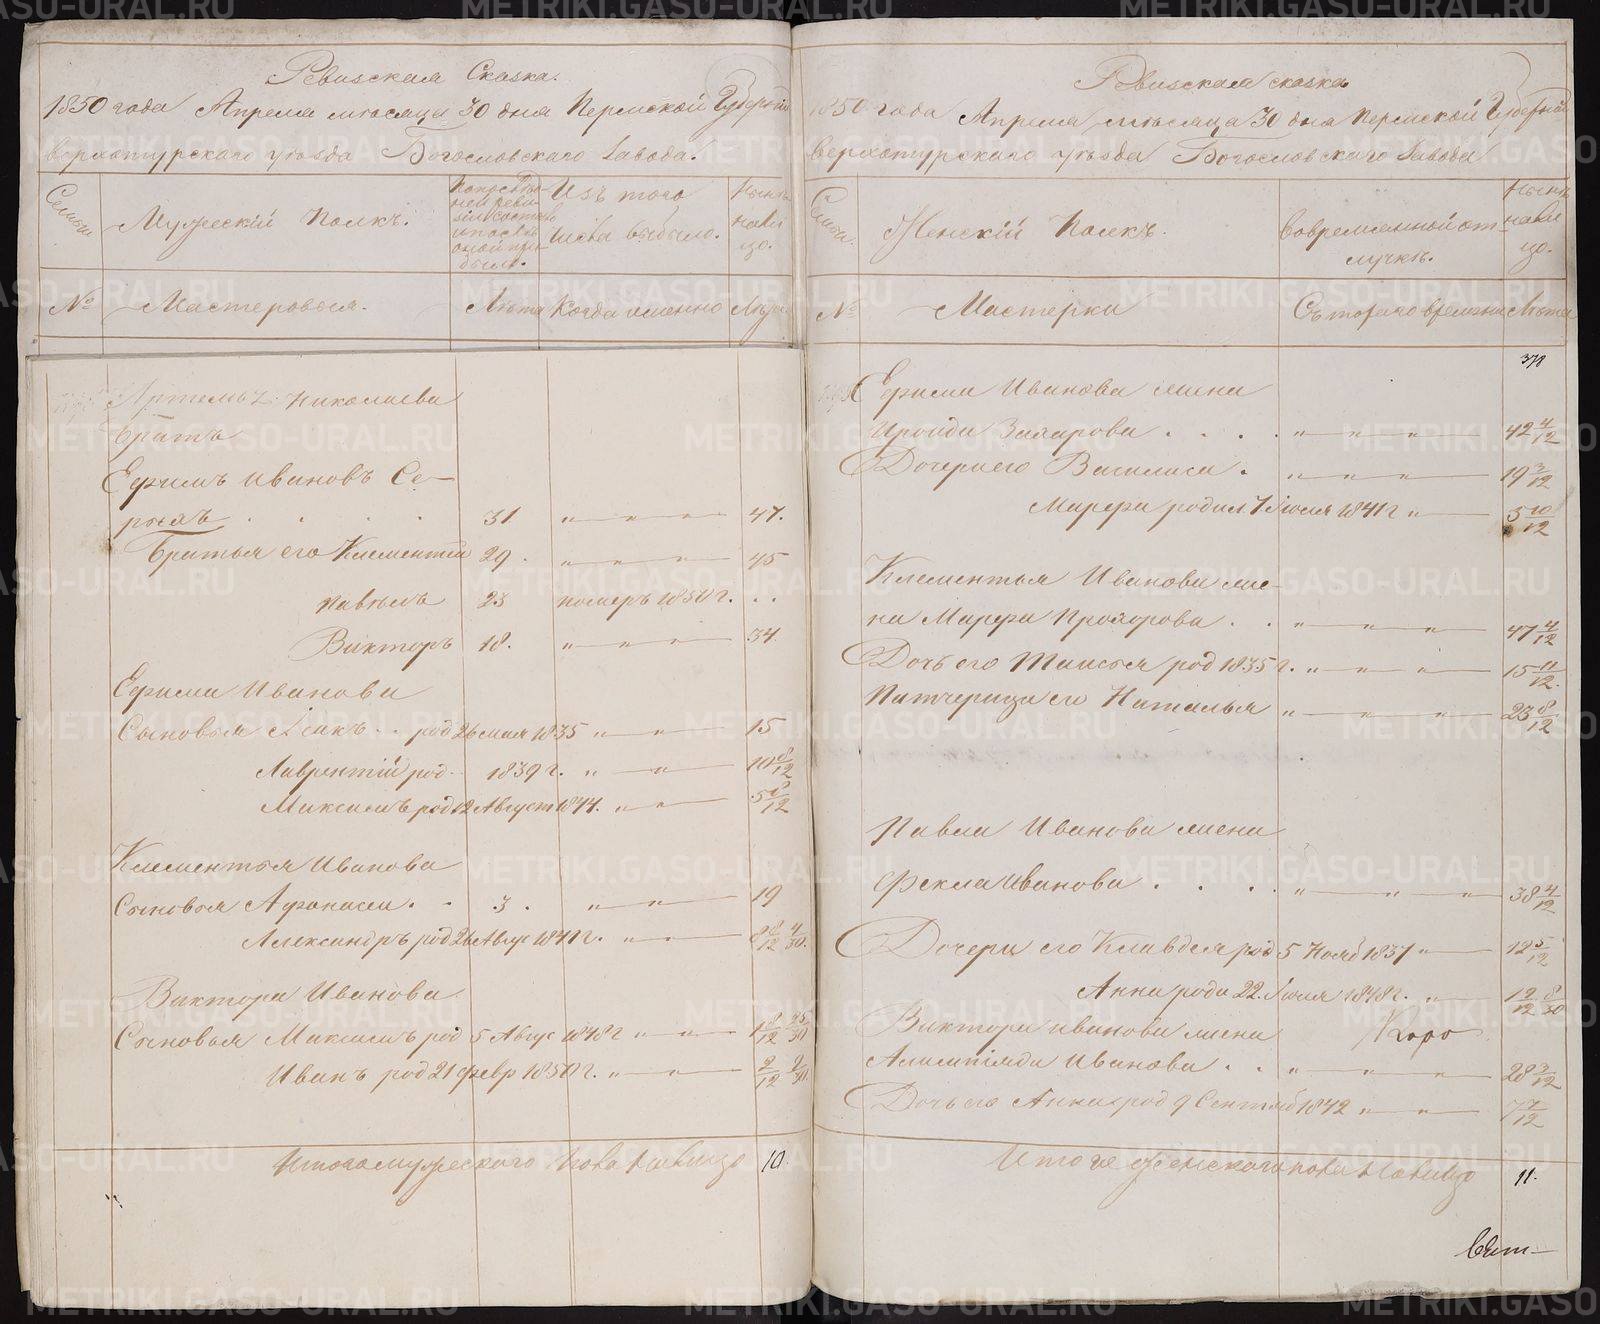 Ревизская Сказка.
1850 года Апреля месяца 30 дня Пермской Губернии
Верхотурскаго уезда Богословскаго Завода.
Семьи
Мужескій Полъ.
По последней ревизіи состояло и после оной прибыло.
Изъ того числа выбыло.
Ныне налицо.
№ Мастеровыя. Лета Когда именно Лета
Артемья Николаева
братъ
Ефимъ Ивановъ Се-
ровъ . . . . 31 " " " 47.
Братья его Клементій 29 . " " " 45
Павелъ 23 померъ 1850 г. . .
Викторъ 18. " " " 34.
Ефима Иванова
Сыновья Исакъ . . род 26 мая 1835 " " 15
Лаврентій род. 1839 г. " " 10 8/12
Максимъ род 12 Август 1844. " "
Клементья Иванова
Сыновья Афанасій . . 3 . " " 19
Александръ род 26 Авгус 1841 г. " " 8 8/12 4/30.
Виктора Иванова
Сыновья Максимъ род 5 Авгус 1848 г " " 1 8/12 25/30
Иванъ род 21 февр 1850 г. " " 2/12 9/30.
Итого мужескаго пола налицо 10.
Ревизская сказка
1850 года Апреля месяца 30 дня Пермской Губерніи
Верхотурскаго уезда Богословскаго Завода
Семьи.
Женскій Полъ.
Во временной отлучке.
Ныне налицо.
№ Мастерки Съ которого времени Лета
378
Ефима Иванова жена
Ираида Захарова . . . . " " " 42 4/12
Дочери его Василиса . " " " 19 3/12
Марфа родил 7 Іюля 1841 г " 5 10/12
Клементья Иванова же-
на Марфа Прохорова . . " " " 47 4/12
Дочь его Таисья род 1835 г. " " " 15 11/12.
Патчерица его Наталья " " " 23 8/12
Павла Иванова жена
Фекла Иванова . . . . " " " 38 4/12
Дочери его Клавдея род 5 Нояб 1837 " 12 5/12
Анна роди 22. Іюля 1848 г. "
Виктора Иванова жена
Алимпіяда Иванова . . " " " 28 3/12
Дочь его Анна род 9 Сентяб 1842 " " 7 7/12
Итого женскаго пола налицо 11.
METRIKI.GASO-URAL.RU